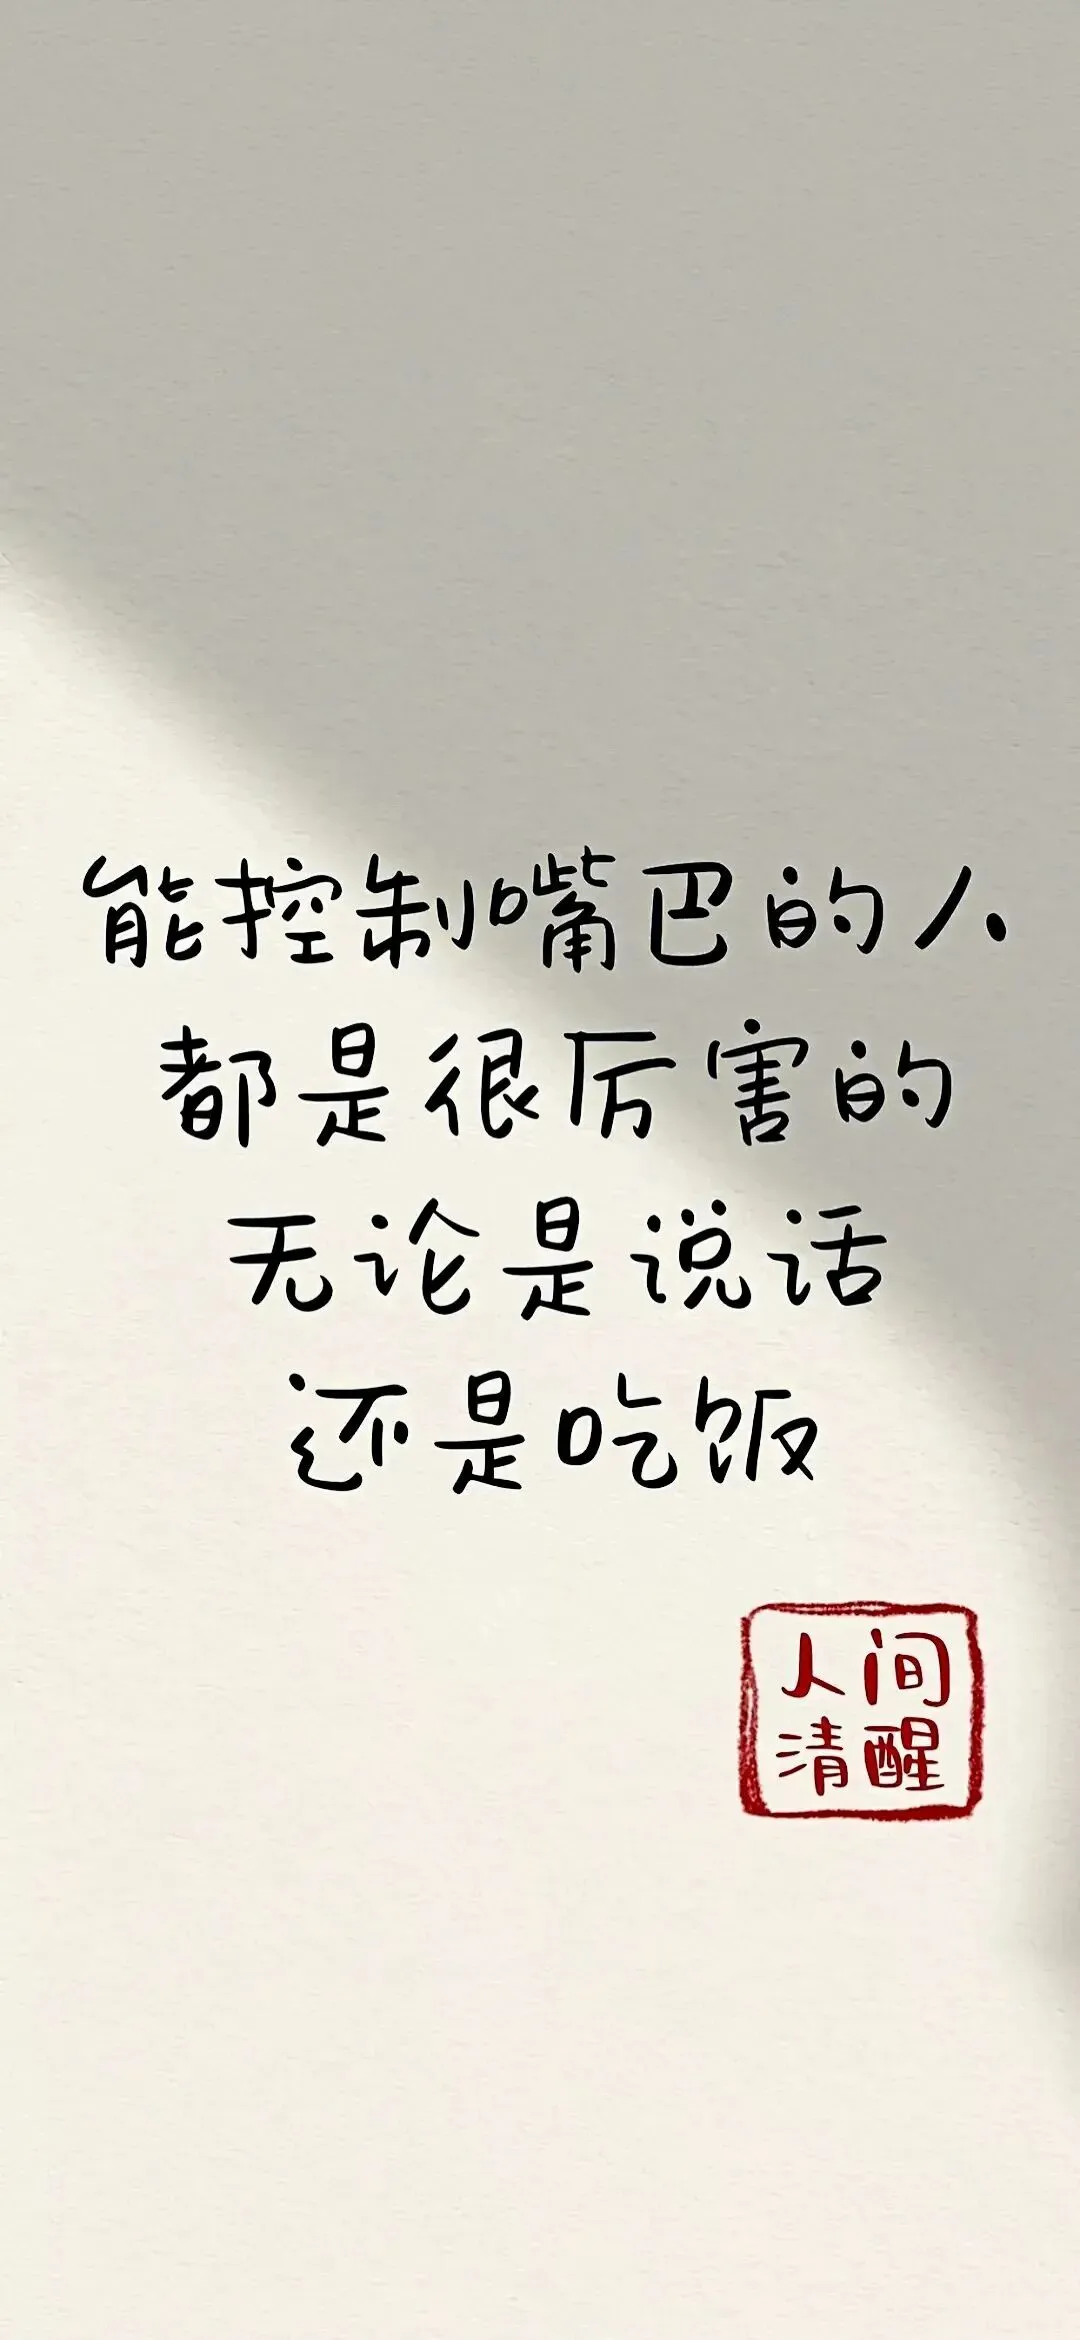 能控制嘴巴的人
都是很厉害的
无论是说话
还是吃饭
人间
清醒